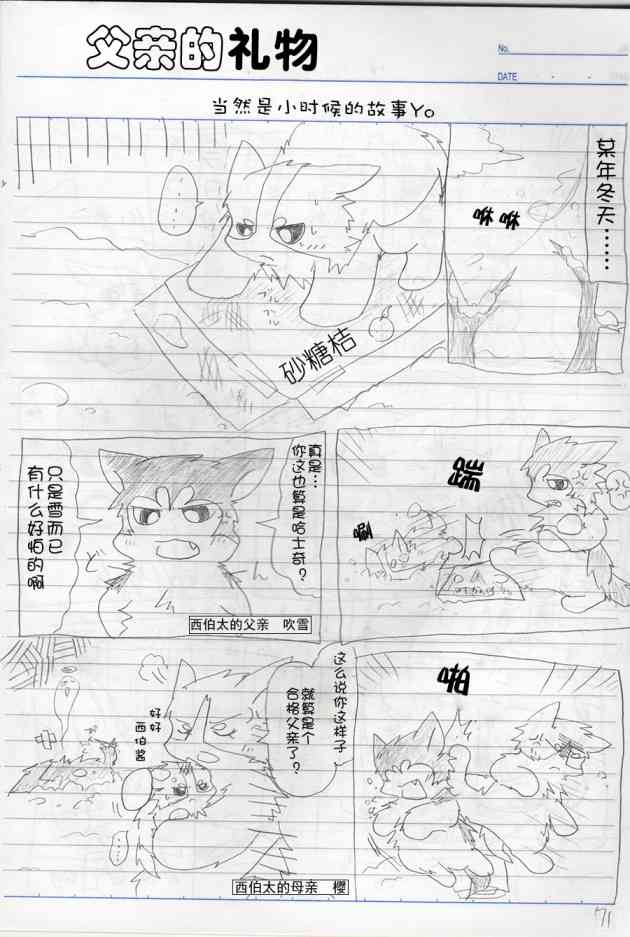 父亲的礼物
No.
DATE - -
当然是小时候的故事Yo
某年冬天……
咻咻
…
砂糖桔
踹
唰
真是…
你这也算是哈士奇？
只是雪而已
有什么好怕的啊
西伯太的父亲 吹雪
啪
这么说你这样子
就算是个
合格父亲了？
好好
西伯酱
西伯太的母亲 樱
71